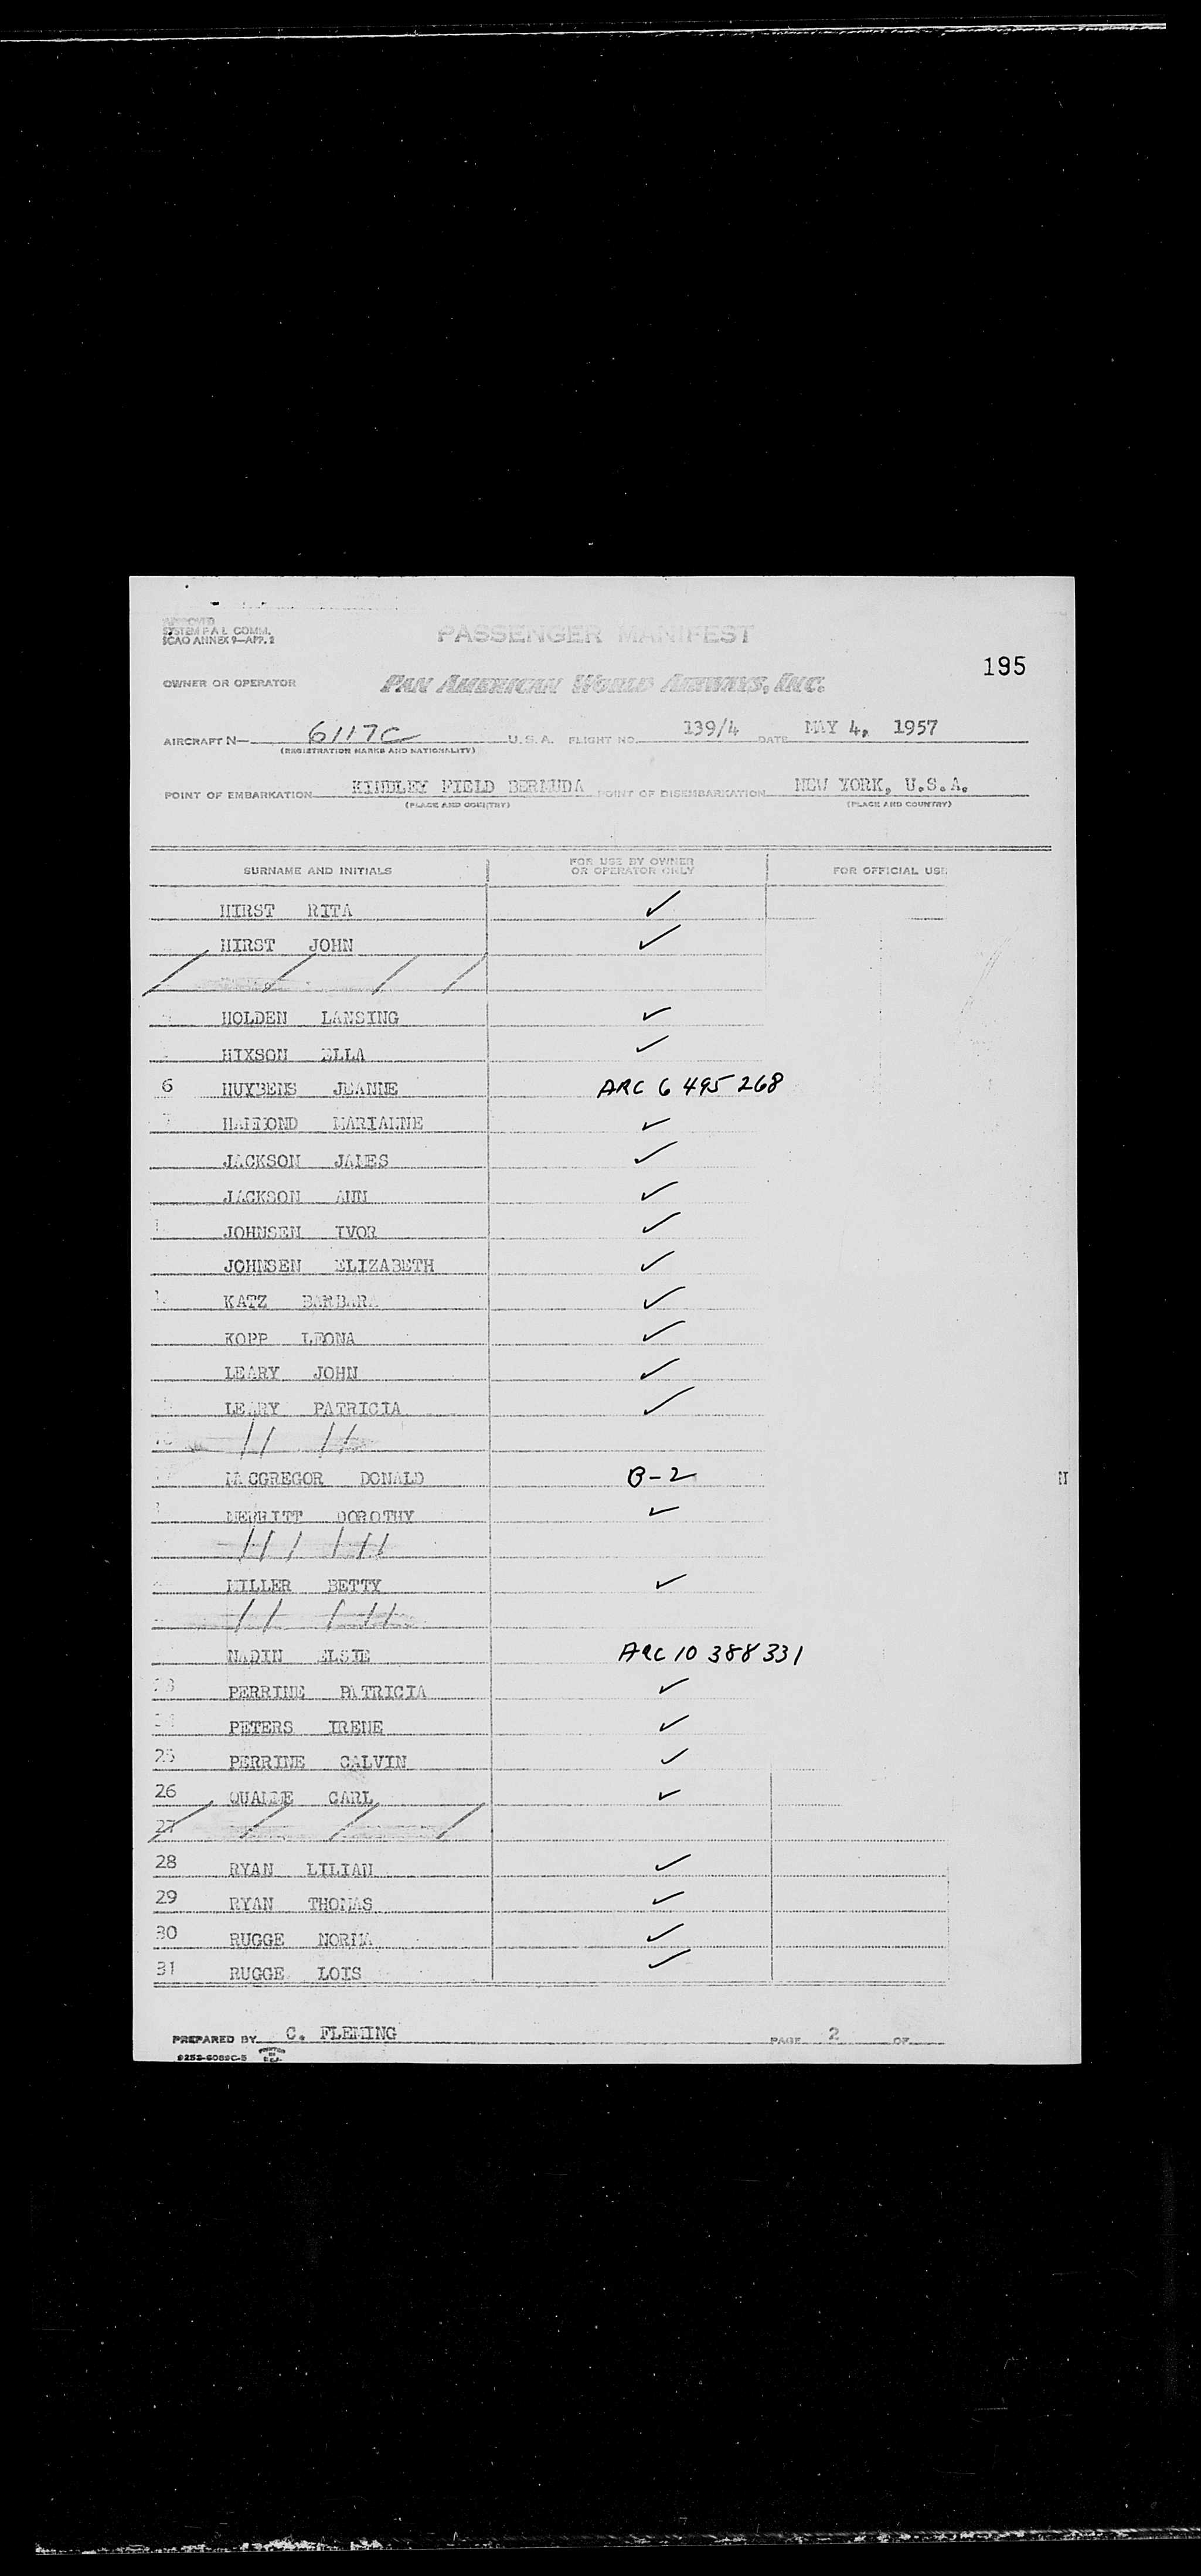 APPROVED
SYSTEM F.A.L. COMM.
ICAO ANNEX 9—APP. 2
PASSENGER MANIFEST
195
OWNER OR OPERATOR PAN AMERICAN WORLD AIRWAYS, INC.
AIRCRAFT N— 6117C U.S.A. FLIGHT NO. 139/4 DATE MAY 4, 1957
(REGISTRATION MARKS AND NATIONALITY)
POINT OF EMBARKATION KINDLEY FIELD BERMUDA POINT OF DISEMBARKATION NEW YORK, U.S.A.
(PLACE AND COUNTRY) (PLACE AND COUNTRY)
SURNAME AND INITIALS FOR USE BY OWNER OR OPERATOR ONLY FOR OFFICIAL USE
HIRST RITA ✓
HIRST JOHN ✓
/ / / /
HOLDEN LANSING ✓
HIXSON ELLA ✓
6 HUYBENS JEANNE ARC 6 495 268
7 HAMMOND MARIANNE ✓
JACKSON JAMES ✓
JACKSON ANN ✓
JOHNSEN IVOR ✓
JOHNSEN ELIZABETH ✓
KATZ BARBARA ✓
KOPP LEONA ✓
LEARY JOHN ✓
LEARY PATRICIA ✓
// //
MACGREGOR DONALD B-2
N
MERRITT DOROTHY ✓
/// ///
MILLER BETTY ✓
// ///
NADIN ELSIE ARC 10 388 331
23 PERRINE PATRICIA ✓
24 PETERS IRENE ✓
25 PERRINE CALVIN ✓
26 CARL ✓
27 / / / /
28 RYAN LILIAN ✓
29 RYAN THOMAS ✓
30 RUGGE NORMA ✓
31 RUGGE LOIS ✓
PREPARED BY C. FLEMING PAGE 2 OF
9253-6089C-5